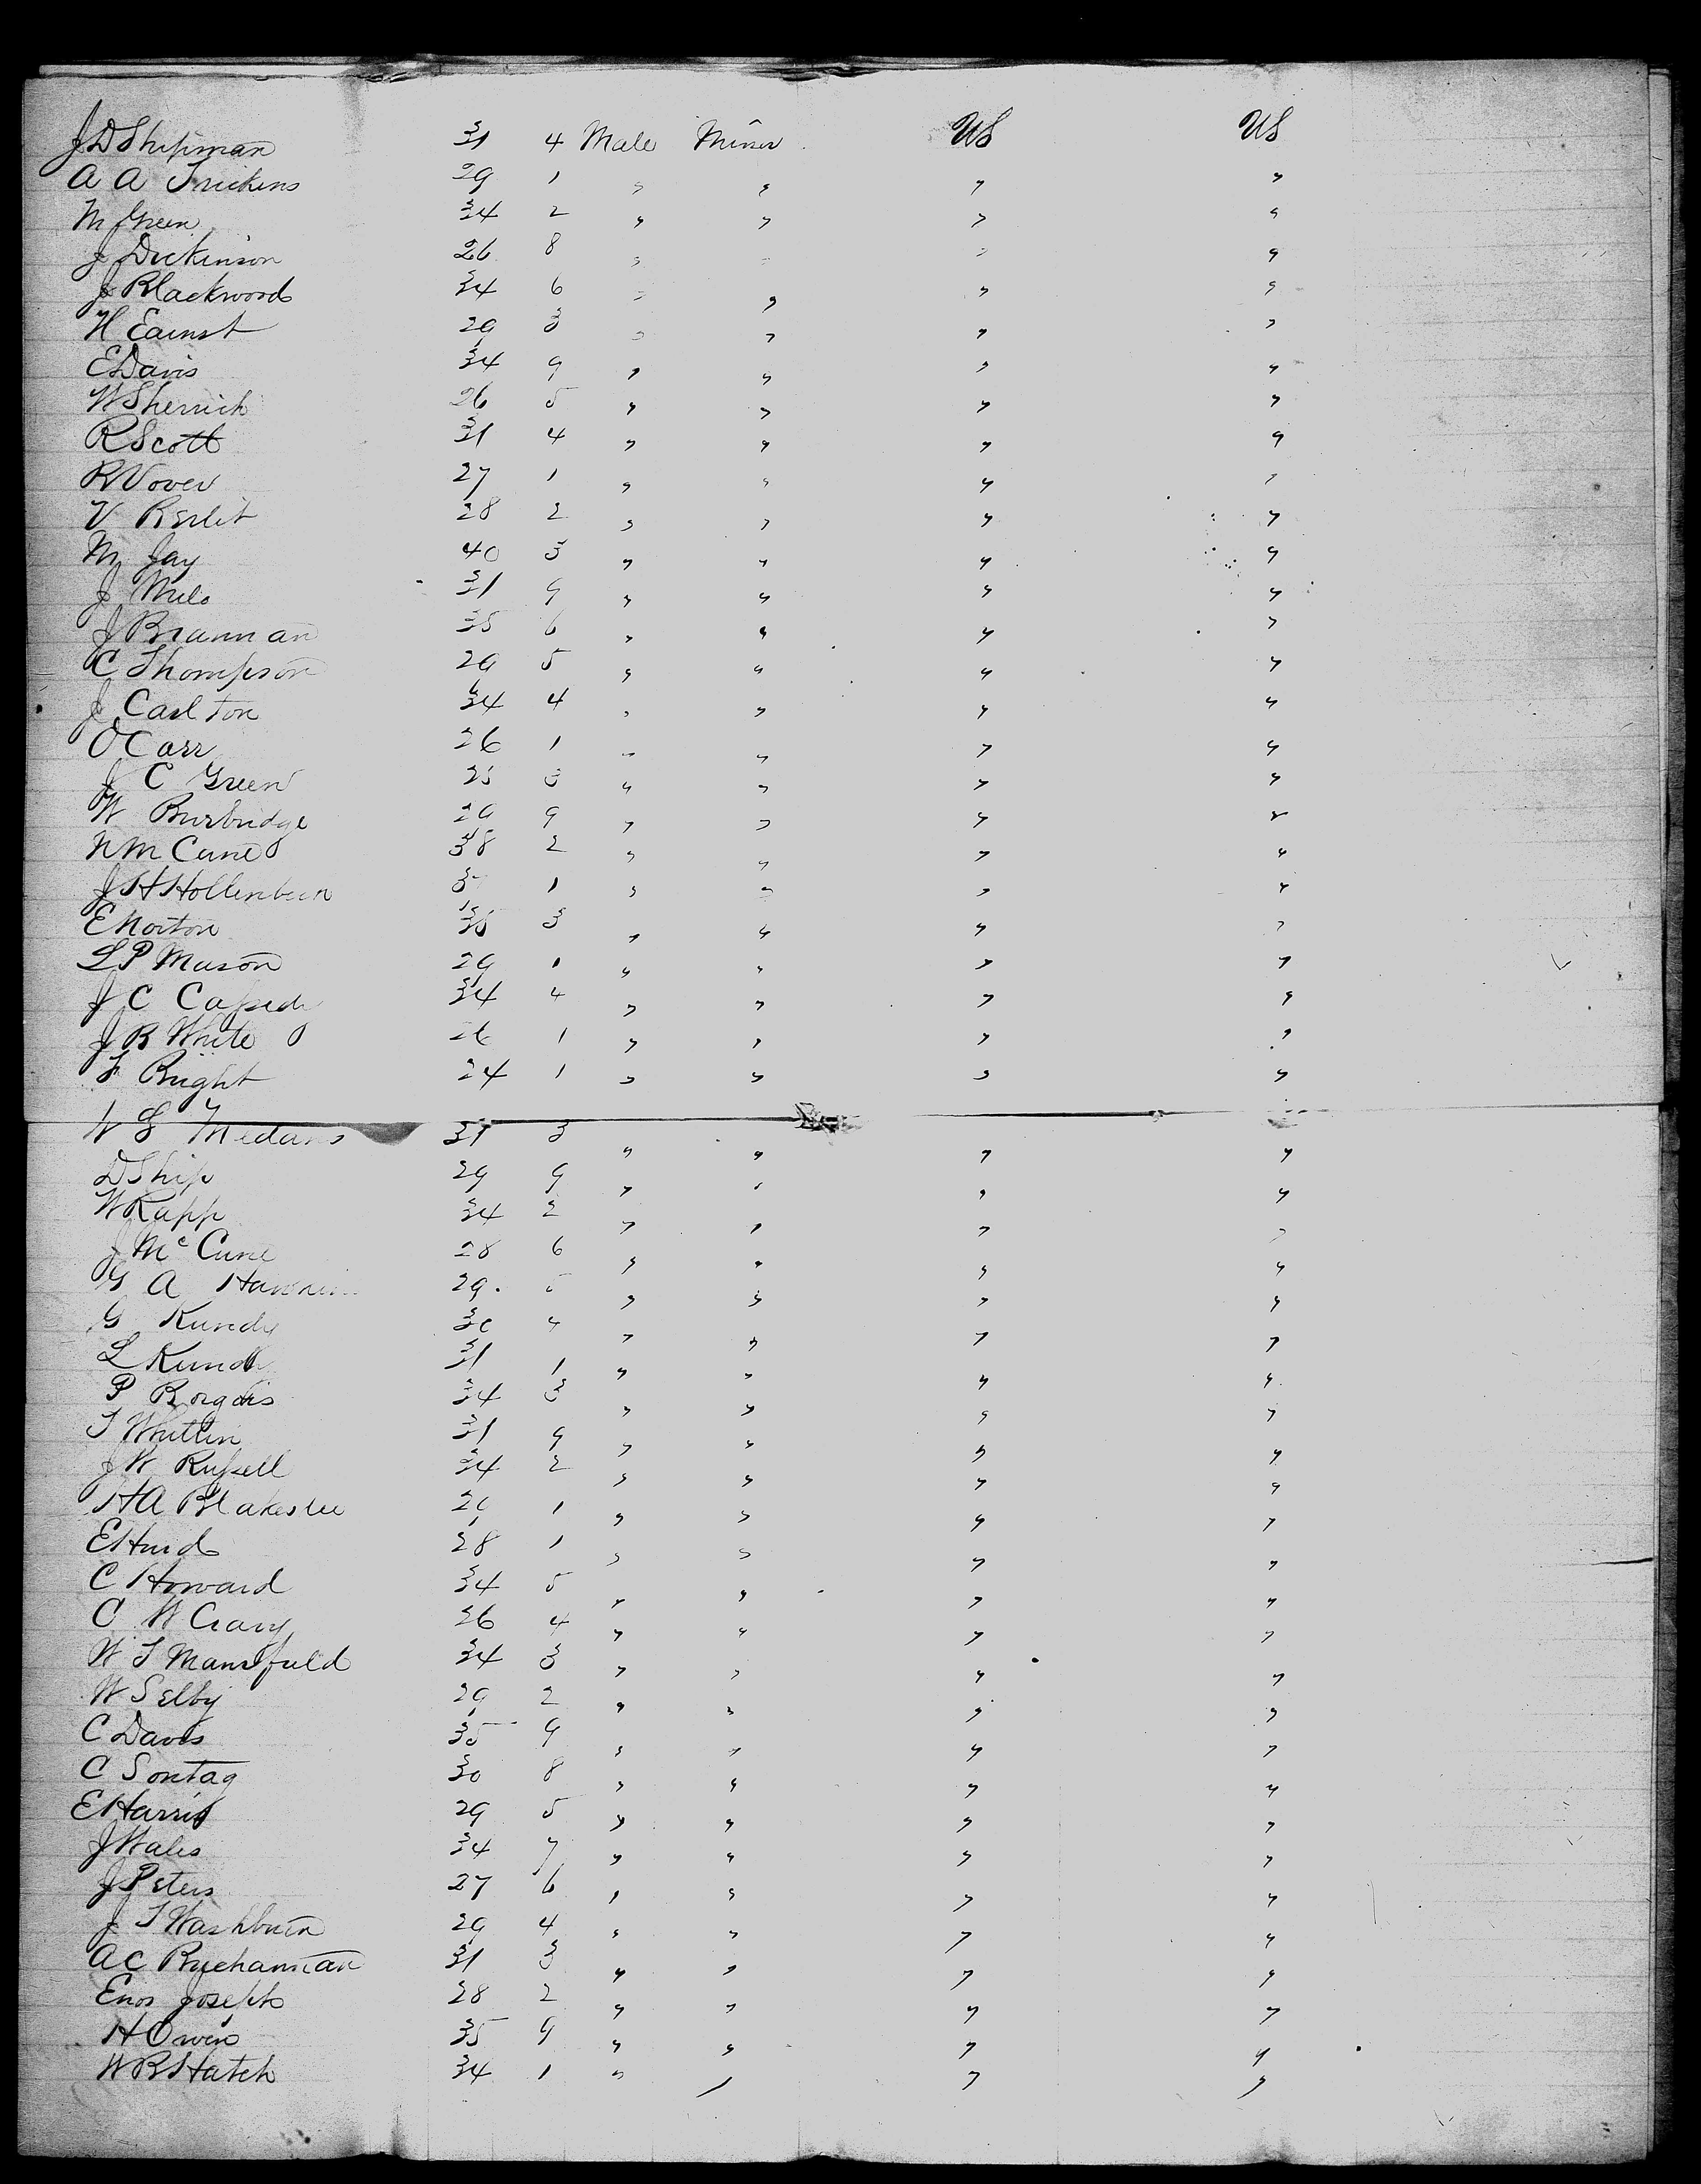 J D Shipman 31 4 Male Miner US US
A A Trickens 29 1 " " " "
M Green 34 2 " " " "
J Dickinson 26 8 " " " "
J Blackwood 34 6 " " " "
H Earnst 29 3 " " " "
E Davis 34 9 " " " "
W Sherrick 26 5 " " " "
R Scott 31 4 " " " "
R Vover 27 1 " " " "
V 28 2 " " " "
M Jay 40 3 " " " "
J 31 9 " " " "
J Brannan 35 6 " " " "
C Thompson 29 5 " " " "
J Carlton 34 4 " " " "
O Carr 26 1 " " " "
J C Green 25 3 " " " "
W Burbridge 29 9 " " " "
N M Cune 38 2 " " " "
J H Hollenbeen 1 " " " "
E Norton 3 " " " "
L P Mason 29 1 " " " "
J C 34 4 " " " "
J R White 26 1 " " " "
F Bright 24 1 " " " "
31 3 " " " "
D Ship 29 9 " " " "
W Rapp 34 2 " " " "
J McCune 28 6 " " " "
G A 29. 5 " " " "
G Kundy 30 4 " " " "
L 31 1 " " " "
P 34 3 " " " "
T Whitlin 31 9 " " " "
J W Russell 34 2 " " " "
H A Blakeslee 29 1 " " " "
E Hurd 28 1 " " " "
C Howard 34 5 " " " "
C W Crary 26 4 " " " "
W T Mansfield 34 3 " " " "
W Selby 29 2 " " " "
C Davis 35 9 " " " "
C Sontag 30 8 " " " "
E Harris 29 5 " " " "
J Wales 34 7 " " " "
J Peters 27 6 " " " "
J T Washburn 29 4 " " " "
A C Buchannan 31 3 " " " "
Enos Josephs 28 2 " " " "
H Owen 35 9 " " " "
W R Hatch 34 1 " " " "